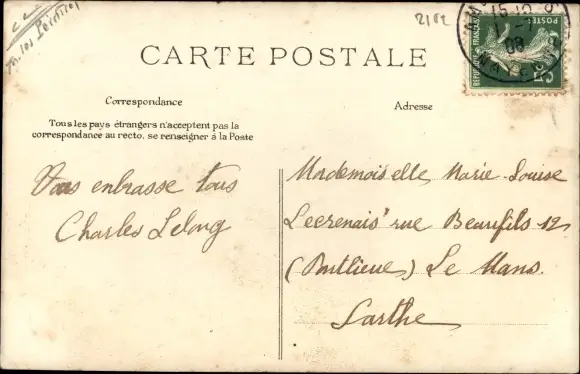 2182
CARTE POSTALE
Correspondance
Adresse
Tous les pays étrangers n'acceptent pas la
correspondance au recto, se renseigner à la Poste
Vous enbrasse tous
Charles Lelong
Mademoiselle Marie-Louise
Leerenais rue Beaufils 12
(Pontlieue) Le Mans.
Sarthe
POSTES
REPUBLIQUE FRANÇAISE
5c
15
08